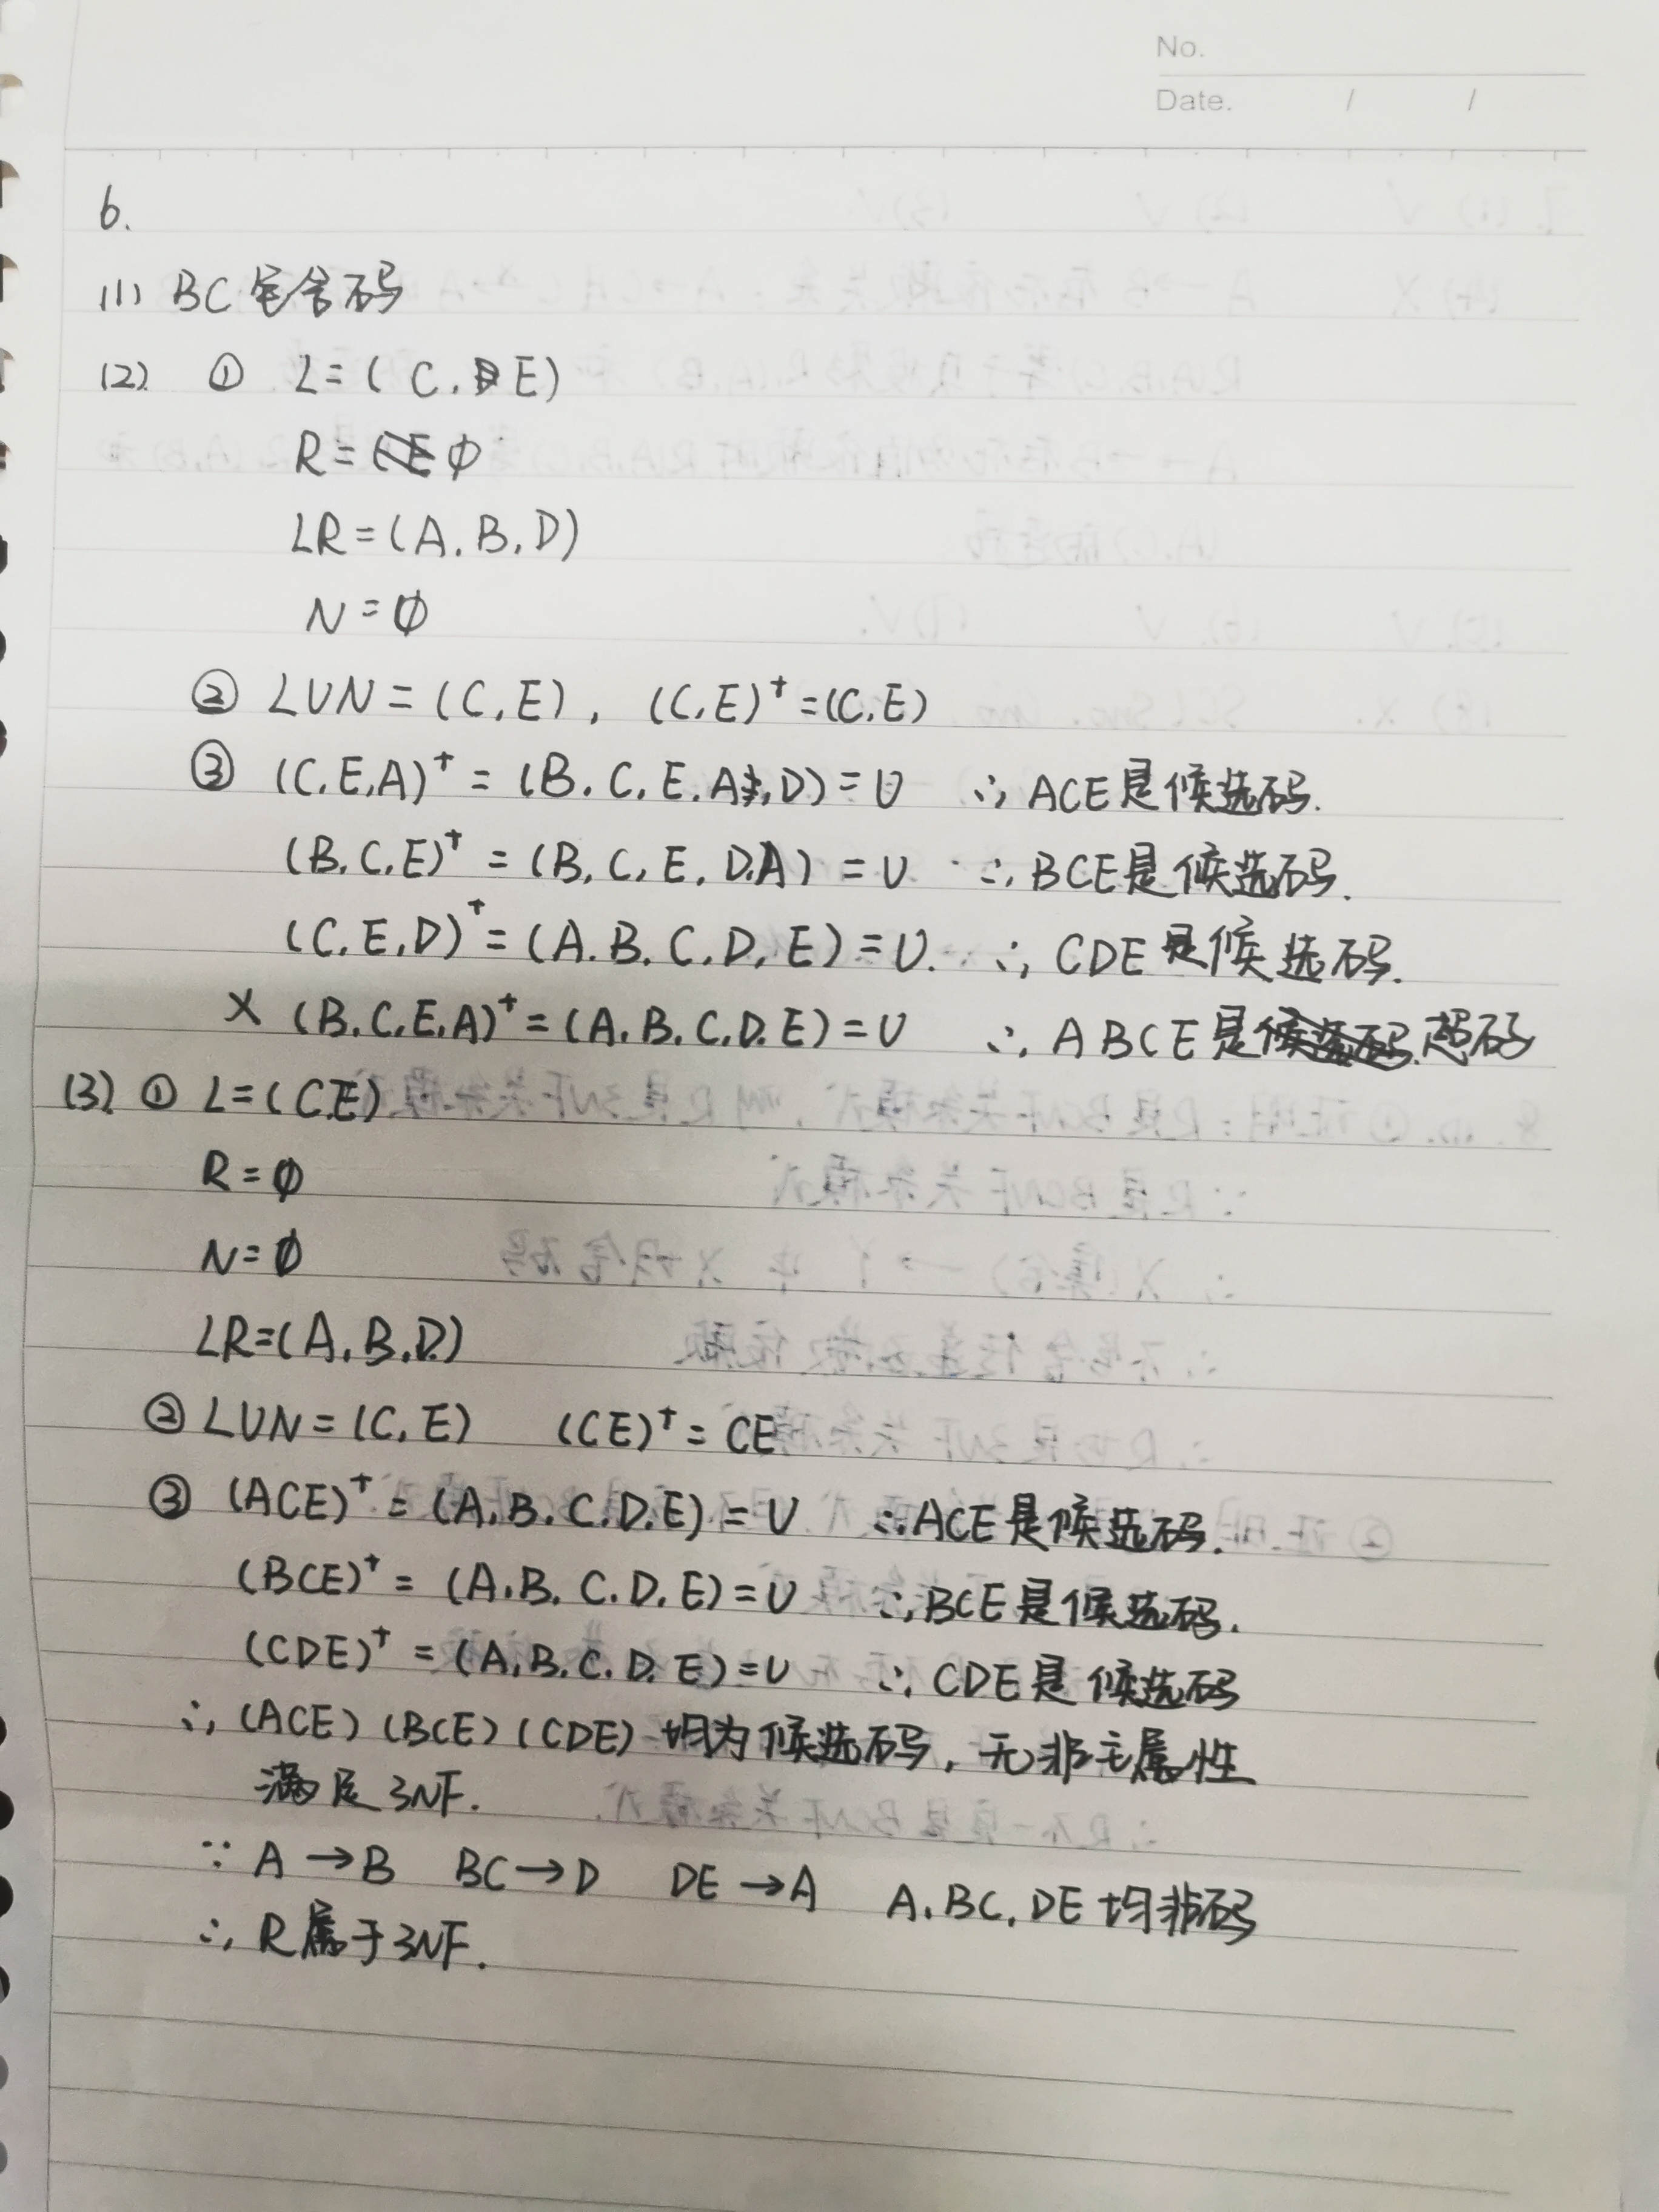 No.
Date. / /
6.
(1) BC包含码
(2) ① L=(C.E)
R=∅
LR=(A.B.D)
N=∅
② LUN=(C,E), (C,E)⁺=(C.E)
③ (C.E.A)⁺=(B.C.E.A,D)=U ∴ ACE是候选码.
(B.C.E)⁺=(B,C,E,D.A)=U ∴ BCE是候选码.
(C.E.D)⁺=(A.B.C.D,E)=U. ∴ CDE是候选码.
X (B.C.E.A)⁺=(A.B.C.D.E)=U ∴ ABCE是超码
(3) ① L=(CE)
R=∅
N=∅
LR=(A.B.D)
② LUN=(C,E) (CE)⁺=CE
③ (ACE)⁺=(A.B.C.D.E)=U ∴ACE是候选码.
(BCE)⁺=(A.B.C.D.E)=U ∴BCE是候选码.
(CDE)⁺=(A.B.C.D.E)=U ∴CDE是候选码
∴ (ACE)(BCE)(CDE)均为候选码, 无非主属性
满足3NF.
∵ A→B BC→D DE→A A.BC.DE均非码
∴ R属于3NF.